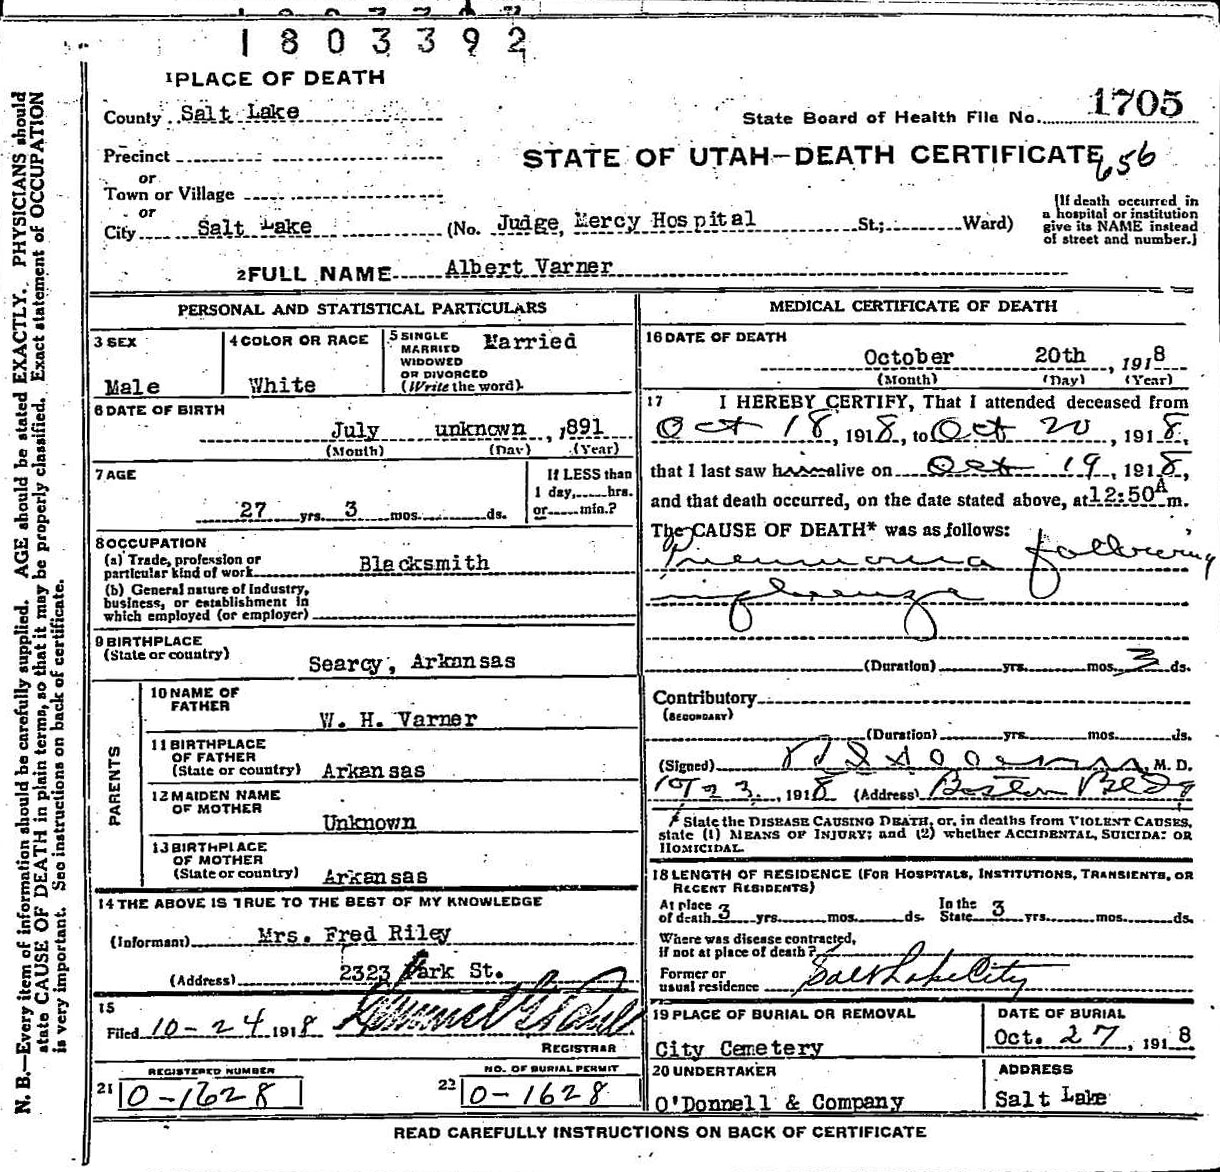 1803392
1 PLACE OF DEATH
County Salt Lake
State Board of Health File No. 1705
Precinct
or
STATE OF UTAH—DEATH CERTIFICATE 656
Town or Village
or
City Salt Lake (No. Judge Mercy Hospital St.; Ward)
[If death occurred in
a hospital or institution
give its NAME instead
of street and number.]
2 FULL NAME Albert Varner
PERSONAL AND STATISTICAL PARTICULARS
3 SEX
Male
4 COLOR OR RACE
White
5 SINGLE
MARRIED
WIDOWED
OR DIVORCED
(Write the word).
Married
6 DATE OF BIRTH
July unknown, 1891
(Month) (Day) (Year)
7 AGE
27 yrs. 3 mos. ds.
If LESS than
1 day, hrs.
or min.?
8 OCCUPATION
(a) Trade, profession or
particular kind of work Blacksmith
(b) General nature of industry,
business, or establishment in
which employed (or employer)
9 BIRTHPLACE
(State or country)
Searcy, Arkansas
PARENTS
10 NAME OF
FATHER
W. H. Varner
11 BIRTHPLACE
OF FATHER
(State or country) Arkansas
12 MAIDEN NAME
OF MOTHER
Unknown
13 BIRTHPLACE
OF MOTHER
(State or country) Arkansas
14 THE ABOVE IS TRUE TO THE BEST OF MY KNOWLEDGE
(Informant) Mrs. Fred Riley
(Address) 2323 Park St.
15
Filed 10-24 1918
REGISTRAR
REGISTERED NUMBER
21 0-1628
NO. OF BURIAL PERMIT
22 0-1628
MEDICAL CERTIFICATE OF DEATH
16 DATE OF DEATH
October 20th, 1918
(Month) (Day) (Year)
17 I HEREBY CERTIFY, That I attended deceased from
Oct 18, 1918, to Oct 20, 1918,
that I last saw him alive on Oct 19, 1918,
and that death occurred, on the date stated above, at 12:50 A m.
The CAUSE OF DEATH* was as follows:
Pneumonia following
influenza
(Duration) yrs. mos. 3 ds.
Contributory
(SECONDARY)
(Duration) yrs. mos. ds.
(Signed) M. D.
1918 (Address) Boston Bldg
* State the DISEASE CAUSING DEATH, or, in deaths from VIOLENT CAUSES,
state (1) MEANS OF INJURY; and (2) whether ACCIDENTAL, SUICIDAL OR
HOMICIDAL.
18 LENGTH OF RESIDENCE (FOR HOSPITALS, INSTITUTIONS, TRANSIENTS, OR
RECENT RESIDENTS)
At place
of death 3 yrs. mos. ds.
In the
State 3 yrs. mos. ds.
Where was disease contracted,
if not at place of death?
Former or
usual residence Salt Lake City
19 PLACE OF BURIAL OR REMOVAL
City Cemetery
DATE OF BURIAL
Oct. 27, 1918
20 UNDERTAKER
O'Donnell & Company
ADDRESS
Salt Lake
READ CAREFULLY INSTRUCTIONS ON BACK OF CERTIFICATE
N. B.—Every item of information should be carefully supplied. AGE should be stated EXACTLY. PHYSICIANS should
state CAUSE OF DEATH in plain terms, so that it may be properly classified. Exact statement of OCCUPATION
is very important. See instructions on back of certificate.